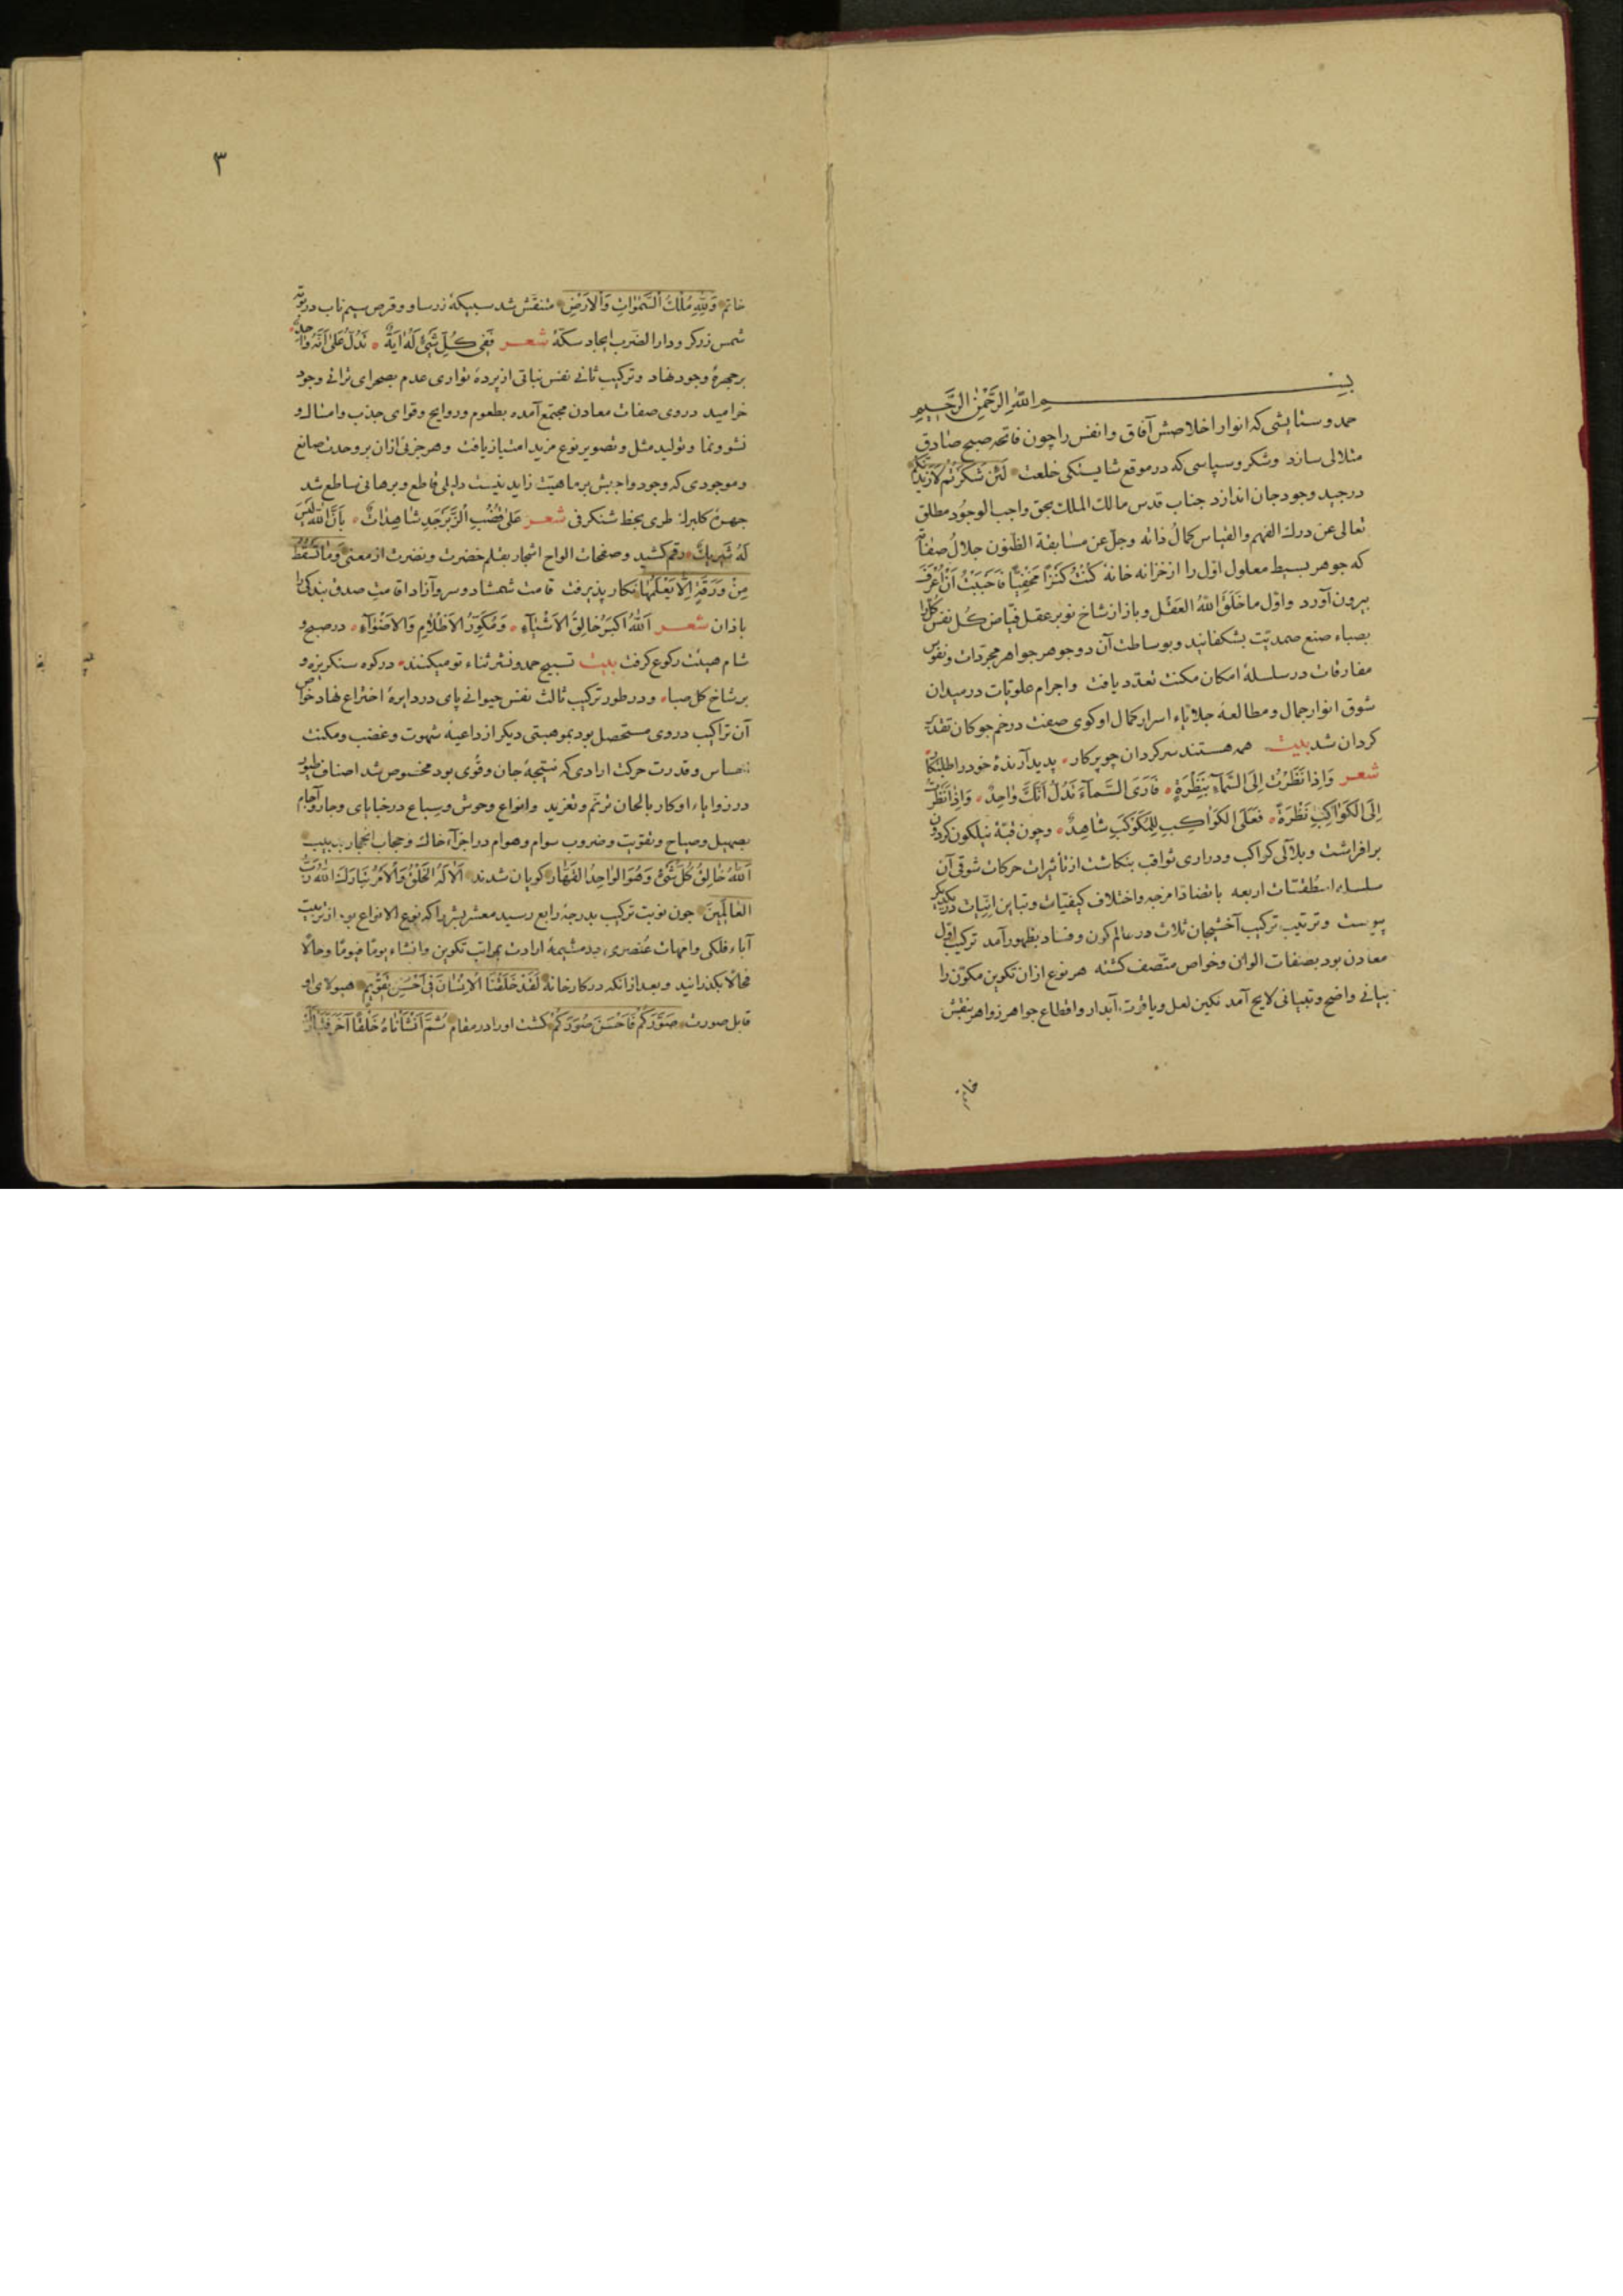 بسم الله الرحمن الرحيم
حمد و ستایشی که انوار اخلاصش آفاق و انفس را چون فاتحه صبح صادق
متلالی سازد و شکر و سپاسی که در موقع شایستکی خلعت لَئِنْ شَكَرْتُمْ لَأَزِيدَنَّكُمْ
درجید وجود جان اندازد جناب قدس مالک الملک بحق واجب الوجود مطلق
تعالی عن درک الفهم والقیاس کمالُ ذاته وجلّ عن مسابقة الظنون جلالُ صفاته
که جوهر بسیط معلول اوّل را از خزانه خانهٔ كُنْتُ كَنْزًا مَخْفِيًّا فَأَحْبَبْتُ أَنْ أُعْرَفَ
بیرون آورد و اوّل ما خَلَقَ اللهُ العَقْل و باز از شاخ نوبر عقل فیّاض کل نفس کل را
بصباء صنع صمدیّت بشکفانید و بوساطت آن دو جوهر جواهر مجرّدات و نفوس
مفارقات در سلسلهٔ امکان مکنت تعدّد یافت و اجرام علویّات در میدان
شوق انوار جمال و مطالعهٔ جلایاء اسرار کمال او کوی صفت در خم جوکان تقدیر
کردان شد بیت همه هستند سرکردان چو پرکار پدید آرندهٔ خود را طلبکار
شعر وَإِذَا نَظَرْتُ إِلَى السَّمَآءِ بِنَظْرَةٍ فَأَرَى السَّمآءَ تَدُلُّ أَنَّكَ وَاحِدٌ وَإِذَا نَظَرْتُ
إِلَى الكَوَاكِبِ نَظْرَةً فَعَلَى الكَوَاكِبِ لِلْمُكَوْكِبِ شَاهِدٌ و چون قبّهٔ نیلکون کردون
برافراشت و بلآلی کواکب و دراری ثواقب بنکاشت از تأثیرات حرکات شوقی آن
سلسلهٔ اسطقسّات اربعه با تضادّ امزجه و اختلاف کیفیّات و تباین انیّات در یکدیکر
پیوست و ترتیب ترکیب آخشیجان ثلاث در عالم کون و فساد بظهور آمد ترکیب اوّل
معادن بود بصفات الوان و خواص متّصف کشته هر نوع ازان تکوین مکوّن را
بیانی واضح و تبیانی لایح آمد نکین لعل و یاقوت آبدار و اقطاع جواهر زواهر بنقش
خاتم
٣
خاتم وَلِلّٰهِ مُلْكُ السَّمٰوَاتِ وَالْأَرْضِ منتقش شد سبیکهٔ زر ساو و قرص سیم ناب در بوته
شمس زرکر و دار الضرب ایجاد سکّهٔ شعر فَفِي كُلِّ شَيْءٍ لَهُ آيَةٌ تَدُلُّ عَلَى أَنَّهُ وَاحِدٌ
بر چهرهٔ وجود نهاد و ترکیب ثانی نفس نباتی از پردهٔ تواری عدم بصحرای ترائی وجود
خرامید در وی صفات معادن مجتمع آمده بطعوم و روایح و قوای جذب و امساک و
نشو و نما و تولید مثل و تصویر نوع مزید امتیاز یافت و هر جزئی ازان بر وحدت صانع
و موجودی که وجود واجبش بر ماهیّت زاید نیست دلیلی قاطع و برهانی ساطع شد
چهرهٔ کلبرک طری بخط شنکرفی شعر عَلَى قُضُبِ الزَّبَرْجَدِ شَاهِدَاتٌ بِأَنَّ اللهَ لَيْسَ
لَهُ شَرِيكٌ رقم کشید و صفحات الواح اشجار بقلم خضرت و نضرت از معنی وَمَا تَسْقُطُ
مِنْ وَرَقَةٍ إِلَّا يَعْلَمُهَا نکار پذیرفت قامت شمشاد و سرو آزاد اقامتِ صدق بندکی را
باذان شعر اَللهُ أَكْبَرُ خَالِقُ الْأَشْيَآءِ وَمُكَوِّرُ الْأَظْلَامِ وَالْأَضْوَآءِ در صبح و
شام هیئت رکوع کرفت بیت تسبیح حمد و نشر ثناء تو میکنند در کوه سنکریزه و
بر شاخ کل صباء و در طور ترکیب ثالث نفس حیوانی پای در دایرهٔ اختراع نهاد خواص
آن تراکیب در وی مستحصل بود بموهبتی دیکر از داعیهٔ شهوت و غضب و مکنت
احساس و قدرت حرکت ارادی که نتیجهٔ جان و قُوی بود مخصوص شد اصناف طیور
در زوایاء اوکار بالحان ترنّم و تغرید و انواع وحوش و سباع در خبایای وجار و آجام
بصهیل و صیاح و تقویت و ضروب سوام و هوام در اجزآء خاک و حجاب احجار
اَللهُ خَالِقُ كُلِّ شَيْءٍ وَهُوَ الْوَاحِدُ الْقَهَّارُ کویان شدند أَلَا لَهُ الْخَلْقُ وَالْأَمْرُ تَبَارَكَ اللهُ رَبُّ
الْعَالَمِينَ چون نوبت ترکیب بدرجهٔ رابع رسید معشر بشر را که نوع الانواع بود از تربیت
آباء فلکی و امّهات عنصری در مشیمهٔ ارادت بمراتب تکوین و انشاء یومًا فیومًا و حالًا
فحالًا بکذرانید و بعد ازانکه در کارخانهٔ لَقَدْ خَلَقْنَا الْإِنْسَانَ فِي أَحْسَنِ تَقْوِيمٍ هیولای او
قابل صورت صَوَّرَكُمْ فَأَحْسَنَ صُوَرَكُمْ کشت او را در مقام ثُمَّ أَنْشَأْنَاهُ خَلْقًا آخَرَ فَتَبَارَكَ